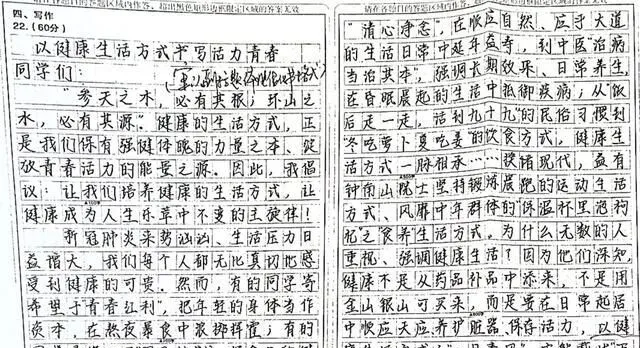 请在各题目的答题区域内作答，超出黑色矩形边框限定区域的答案无效
四、写作
22.（60分）
以健康生活方式书写活力青春
同学们：
“参天之木，必有其根；环山之
水，必有其源。”健康的生活方式，正
是我们保有强健体魄的力量之本、绽
放青春活力的能量之源。因此，我倡
议：让我们培养健康的生活方式，让
健康成为人生乐章中不变的主旋律！
新冠肺炎来势汹汹、生活压力日
益增大，我们每个人都无比真切地感
受到健康的可贵。然而，有的同学寄
希望于“青春红利”，把年轻的身体当作
资本，在熬夜暴食中浪掷挥霍；有的
请在各题目的答题区域内作答，超出黑色矩形边框限定区域的答案无效
“清心净念”，在顺应自然、应于大道
的生活日常中延年益寿，到中医“治病
当治其本”，强调长期效果、日常养生，
在昏眠晨起的生活中抵御疾病；从“饭
后走一走，活到九十九”的民俗习惯到
“冬吃萝卜夏吃姜”的饮食方式，健康生
活方式一脉相承……
钟南山院士坚持锻炼晨跑的运动生活
方式、风靡中年群体的“保温杯里泡枸
杞”之食养生活方式，为什么无数的人
重视、强调健康生活？因为他们深知，
健康不是从药品补品中添来，不是用
金山银山可买来，而是要在日常起活
中顺应天应养护脏器，保存活力，以健